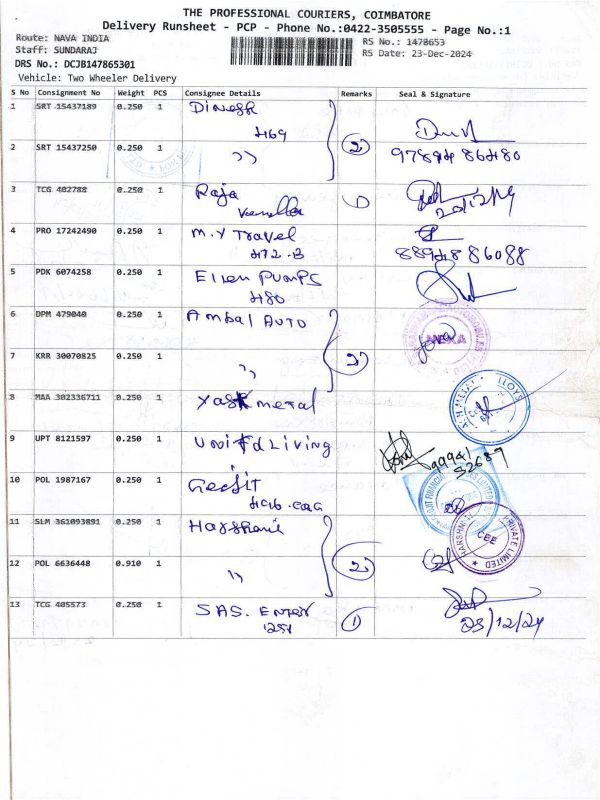 THE PROFESSIONAL COURIERS, COIMBATORE
Delivery Runsheet - PCP - Phone No.:0422-3505555 - Page No.:1
Route: NAVA INDIA
RS No.: 1478653
Staff: SUNDARAJ
RS Date: 23-Dec-2024
DRS No.: DCJB147865301
Vehicle: Two Wheeler Delivery
S No Consignment No Weight PCS Consignee Details Remarks Seal & Signature
1 SRT 15437189 0.250 1 Dinesh
469
2 SRT 15437250 0.250 1 ,, 2 9788486480
3 TCG 402788 0.250 1 Raja 1
4 PRO 17242490 0.250 1 M.Y Travel
472-B 8894886088
5 PDK 6074258 0.250 1 Ellen Pumps
480
6 DPM 479040 0.250 1 Ambal Auto
7 KRR 30070825 0.250 1 ,, 2
8 MAA 302336711 0.250 1 Yask metal
9 UPT 8121597 0.250 1 United Living
99941
52687
10 POL 1987167 0.250 1
11 SLM 361093891 0.250 1 Harshani
HARSHNI PRIVATE LIMITED
CBE
12 POL 6636448 0.910 1 ,, 2
13 TCG 405573 0.250 1 SAS. Enter 1
1251 23/12/24